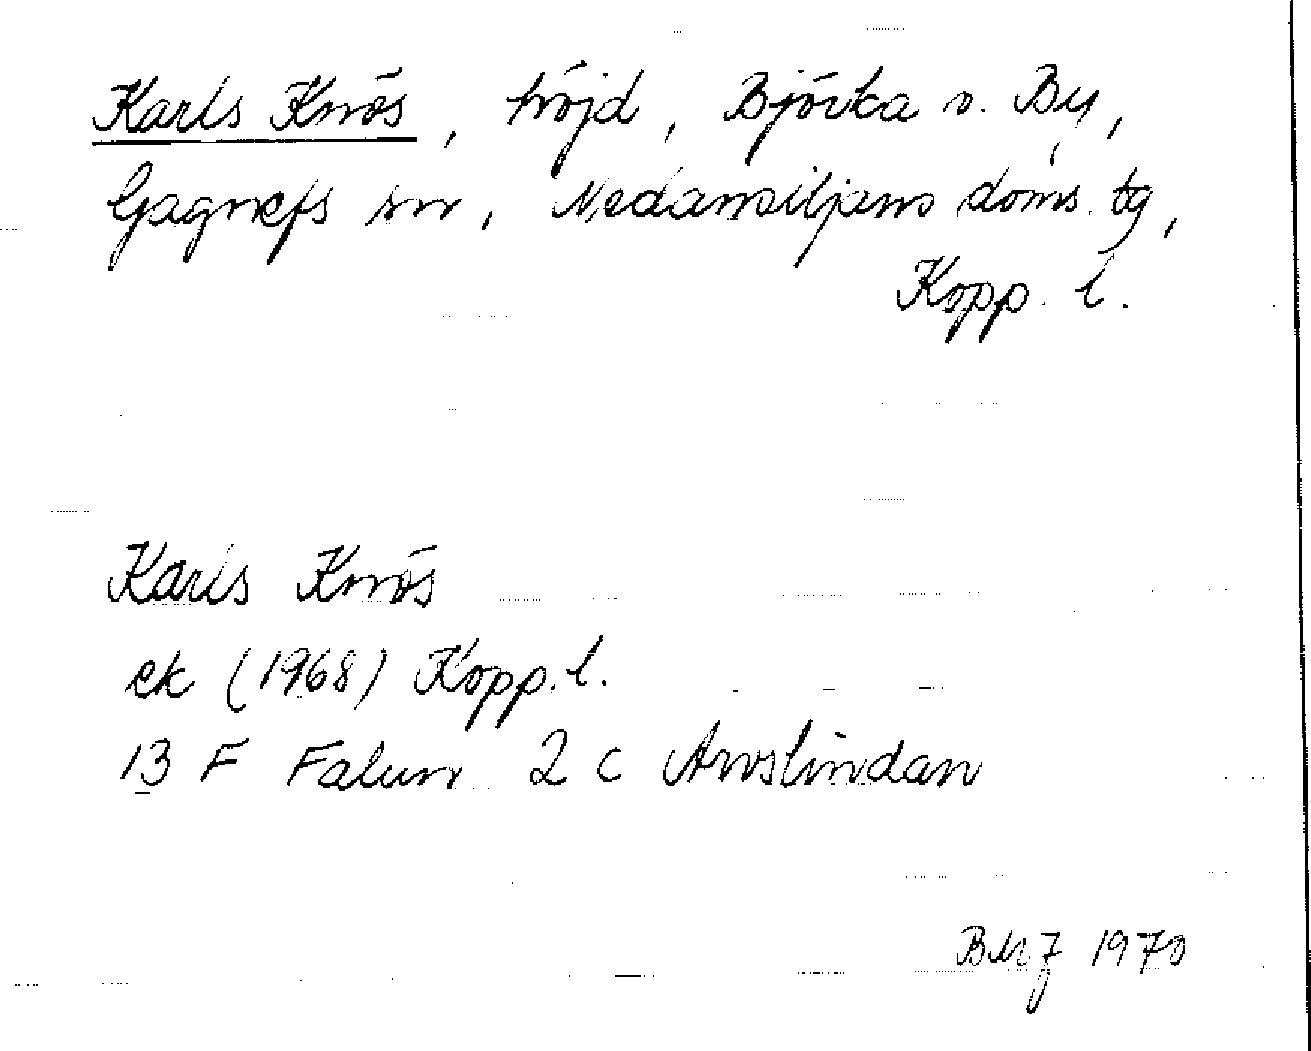 Karls Knös, höjd, Björka o. By,
Gagnefs sn, Nedansiljans doms. tg,
Kopp. l.
Karls Knös
ek (1968) Kopp. l.
13 F Falun 2 c Arvslindan
1970